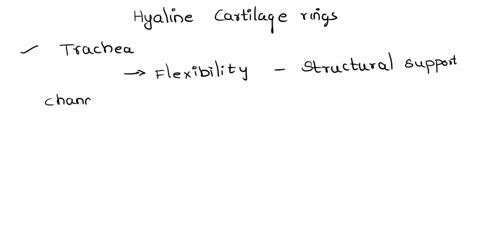 Hyaline Cartilage rings
✓ Trachea
→ Flexibility - Structural support
chann